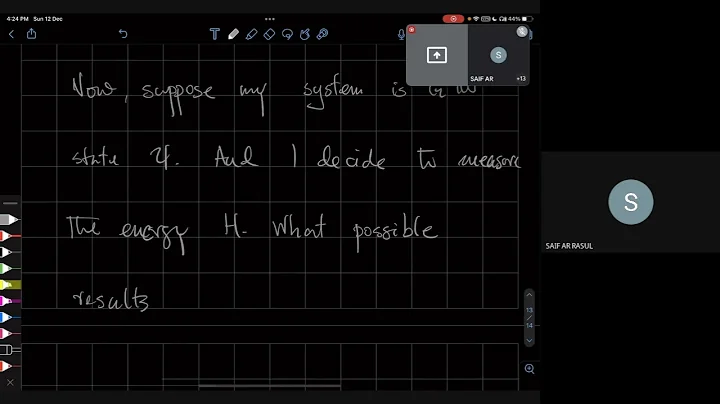 4:24 PM Sun 12 Dec
44%
SAIF AR
+13
S
Now, suppose my system is in
state ψ. And I decide to measure
The energy H. What possible
results
13
14
S
SAIF AR RASUL